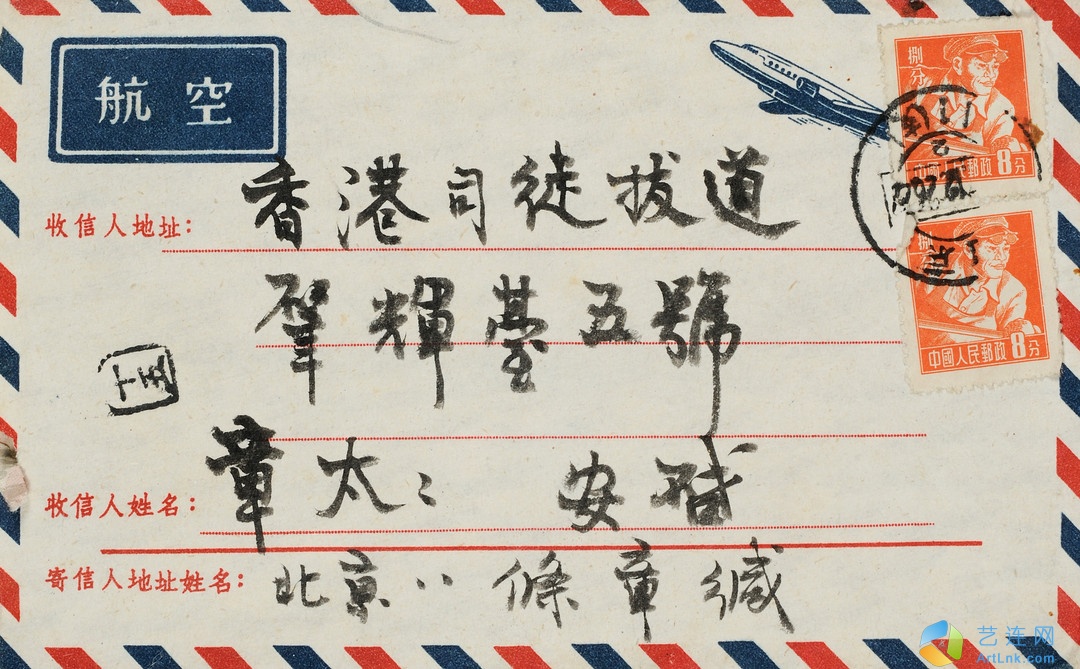 航空
捌分
中國人民郵政8分
捌分
中國人民郵政8分
收信人地址：
香港司徒拔道
肇輝臺五號
十五
收信人姓名：
章太〻 安啟
寄信人地址姓名：
北京八條章緘
艺连网
ArtLnk.com